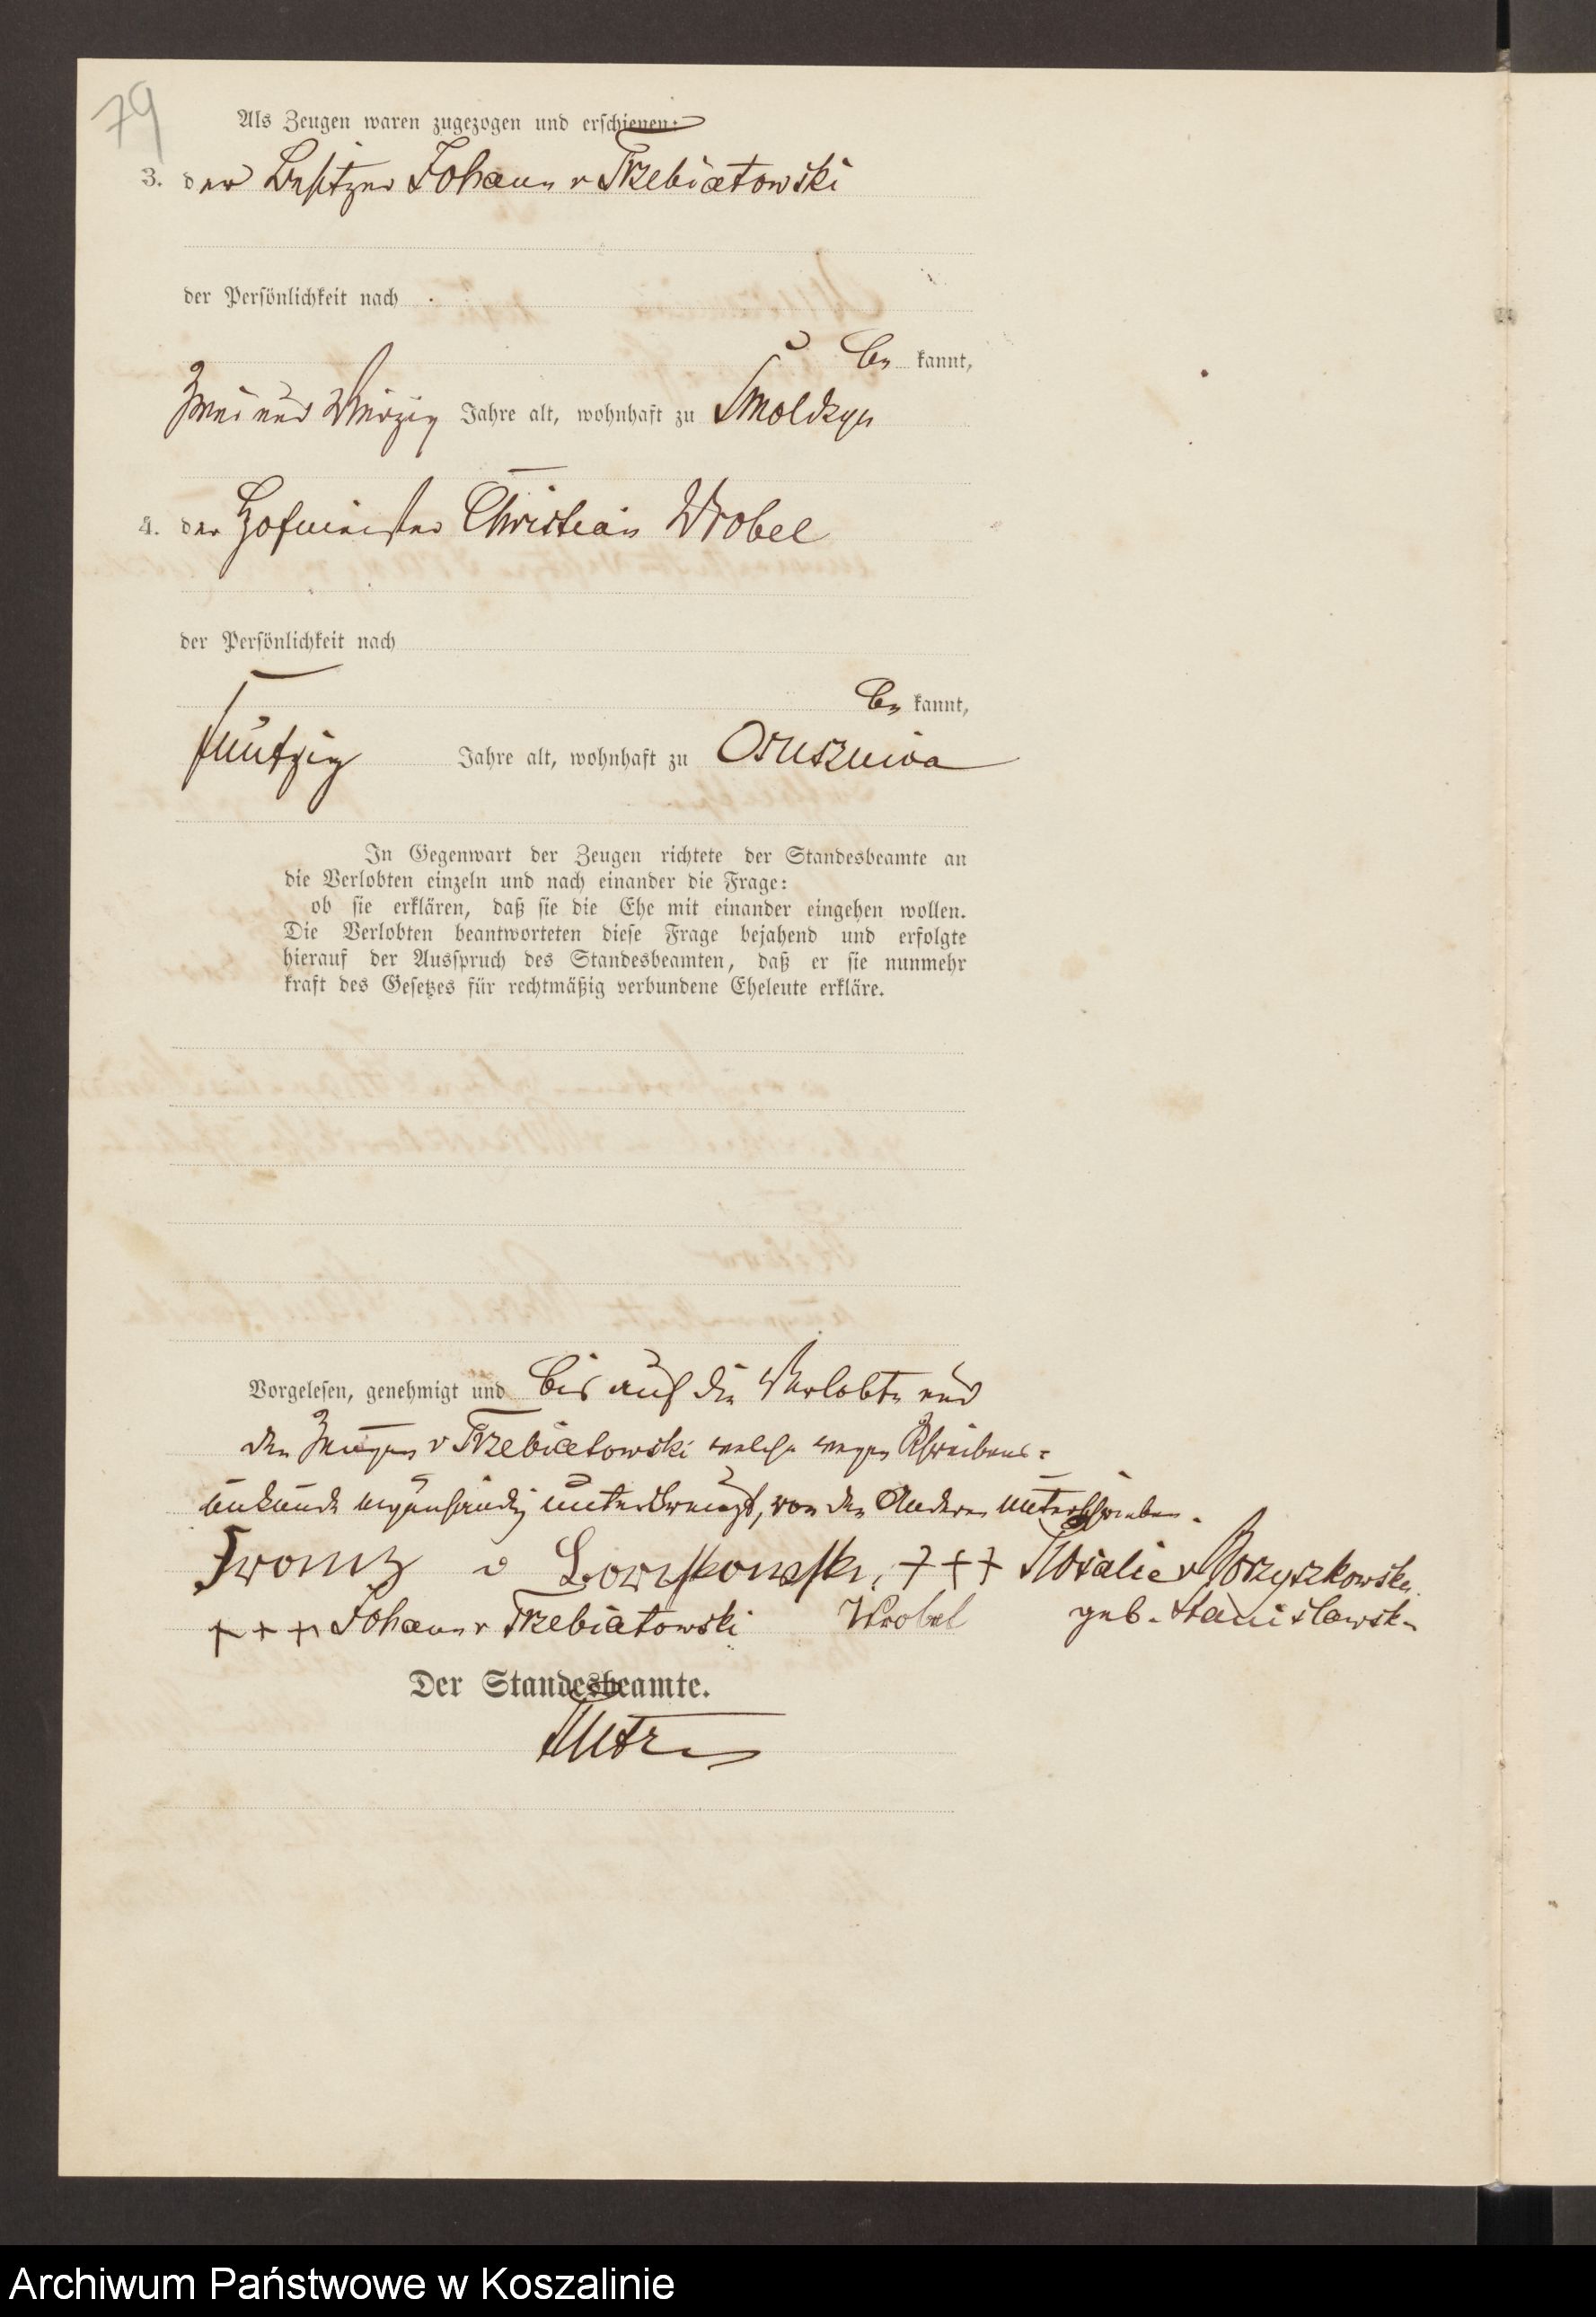 79
Als Zeugen waren zugezogen und erschienen:
3. der Besitzer Johann v Trzebiatowski
der Persönlichkeit nach
be kannt,
zwei und vierzig Jahre alt, wohnhaft zu Smoldzyn
4. der Hofmeister Christian Wrobel
der Persönlichkeit nach
be kannt,
fünfzig Jahre alt, wohnhaft zu Osuszniza
In Gegenwart der Zeugen richtete der Standesbeamte an
die Verlobten einzeln und nach einander die Frage:
ob sie erklären, daß sie die Ehe mit einander eingehen wollen.
Die Verlobten beantworteten diese Frage bejahend und erfolgte
hierauf der Ausspruch des Standesbeamten, daß er sie nunmehr
kraft des Gesetzes für rechtmäßig verbundene Eheleute erkläre.
Vorgelesen, genehmigt und bis auf die Verlobte und
den Zeugen v Trzebiatowski welche wegen Schreibens-
unkunde eigenhändig unterkreuzt, von den Anderen unterschrieben.
Franz v +++ Rosalie v Borzyszkowska
+++ Johann v Trzebiatowski Wrobel geb. Stanislawska
Der Standesbeamte.
Archiwum Państwowe w Koszalinie